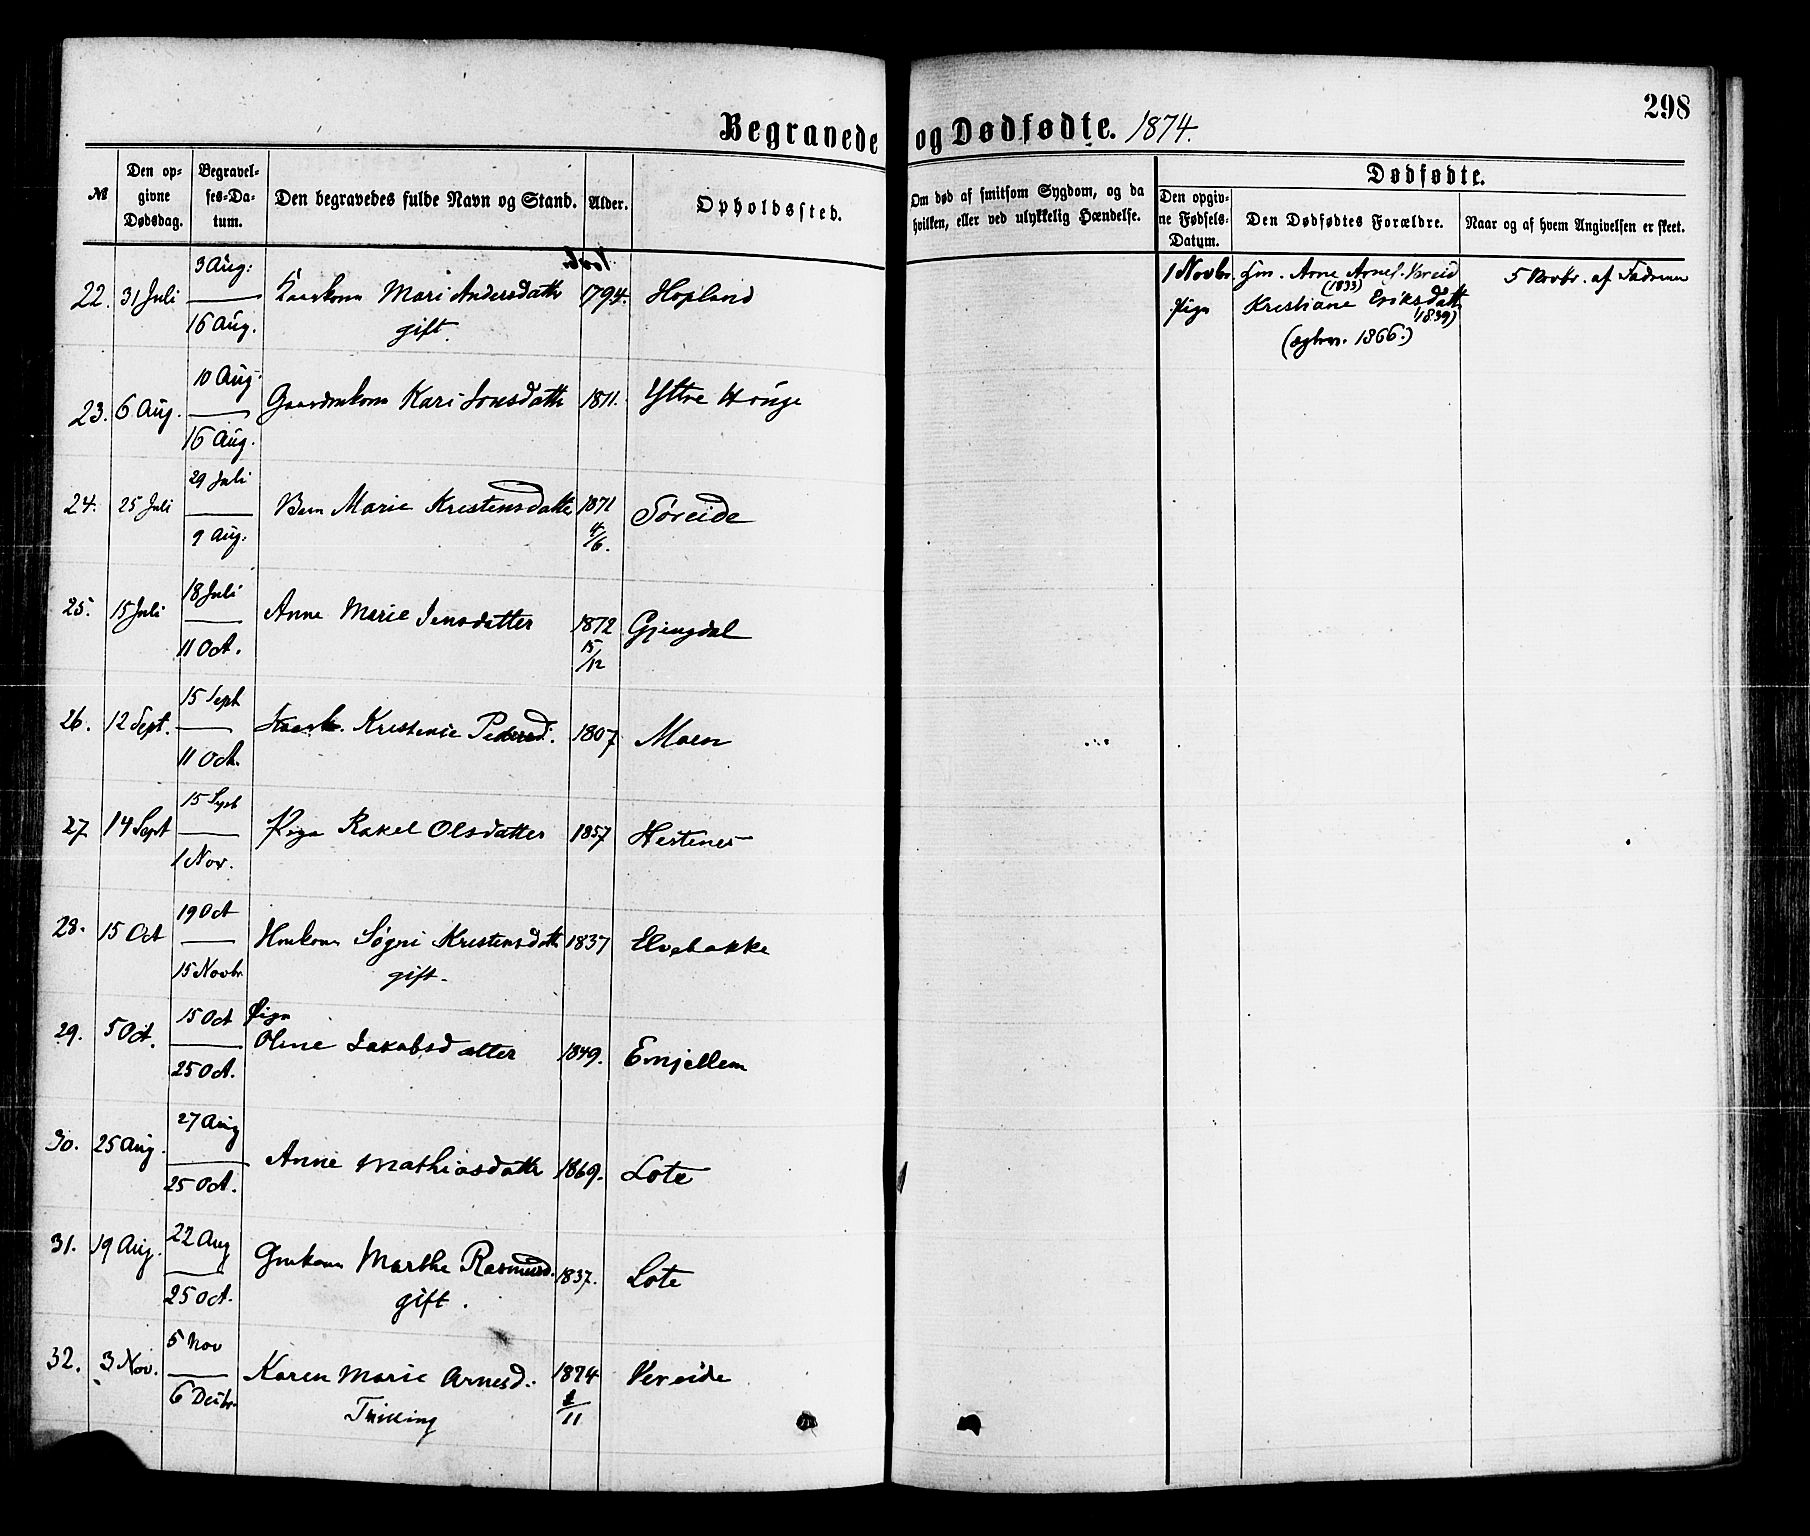 298
Begravede og Dødfødte. 1874.
№
Den opgivne Dødsdag.
Begravelses-Datum.
Den begravedes fulde Navn og Stand.
Alder.
Opholdssted.
Om død af smitsom Sygdom, og da hvilken, eller ved ulykkelig Hændelse.
Dødfødte.
Den opgivne Fødsels-Datum.
Den Dødfødtes Forældre.
Naar og af hvem Angivelsen er skeet.
22. 31 Juli 3 Aug: Mari Andersdattr 1794. Hopland
16 Aug. gift.
1 Novbr. Gm. Arne Arnes. 5 Novbr. af Faderen
(1833)
Pige Kristiane Eriksdatt.
1839)
1866.)
10 Aug
23. 6 Aug. Kari Jonsdattr 1811. Yttre Hauge
16 Aug.
29 Juli
24. 25 Juli Barn Marie Kristensdatter 1871 Søreide
9 Aug. 4/6.
18 Juli
25. 15 Juli Anne Marie Jensdatter 1872 Gjengdal
11 Oct. 15/12
15 Sept
26. 12 Sept. Kristense Pedersd. 1807 Moen
11 Oct.
15 Sept
27 14 Sept Pige Rakel Olsdatter 1857 Hestenes
1 Nov.
19 Oct
28. 15 Oct Huskone Søgni Kristensdattr 1837 Elvebakke
15 Novbr gift.
15 Oct Pige
29. 5 Oct. Oline Jakobsdatter 1849. Emjellem
25 Oct.
27 Aug
30. 25 Aug. Anne Mathiasdattr 1869. Lote
25 Oct.
31. 19 Aug. 22 Aug Gmkone Marthe Rasmusd. 1837. Lote
25 Oct. gift.
5 Nov
32. 3 Nov. Karen Marie Arnesd. 1874 Vereide
6 Decbr. Tvilling 1/11